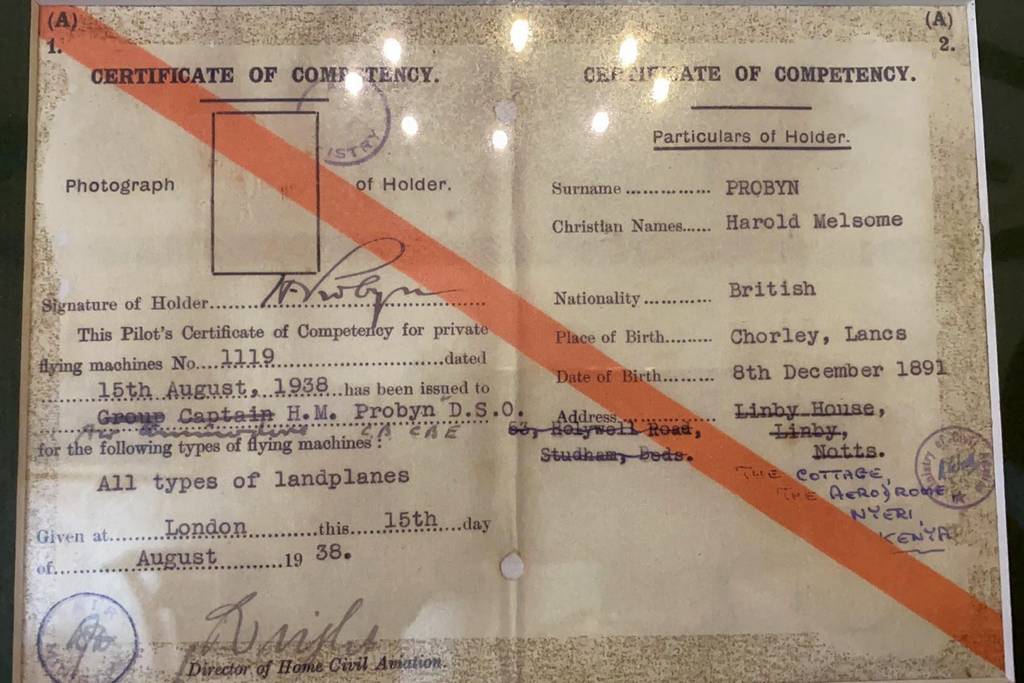 (A)
1.
CERTIFICATE OF COMPETENCY.
ISTRY
Photograph of Holder.
H Probyn
Signature of Holder
This Pilot's Certificate of Competency for private
flying machines No. 1119 dated
15th August, 1938 has been issued to
Group Captain H.M. Probyn D.S.O.
Air Commodore CB CBE
for the following types of flying machines:
All types of landplanes
Given at London this 15th day
of August 1938.
Director of Home Civil Aviation.
(A)
2.
CERTIFICATE OF COMPETENCY.
Particulars of Holder.
Surname PROBYN
Christian Names Harold Melsome
Nationality British
Place of Birth Chorley, Lancs
Date of Birth 8th December 1891
Address Linby House,
63, Holywell Road, Linby,
Studham, Beds. Notts.
THE COTTAGE,
THE AERODROME
NYERI,
KENYA